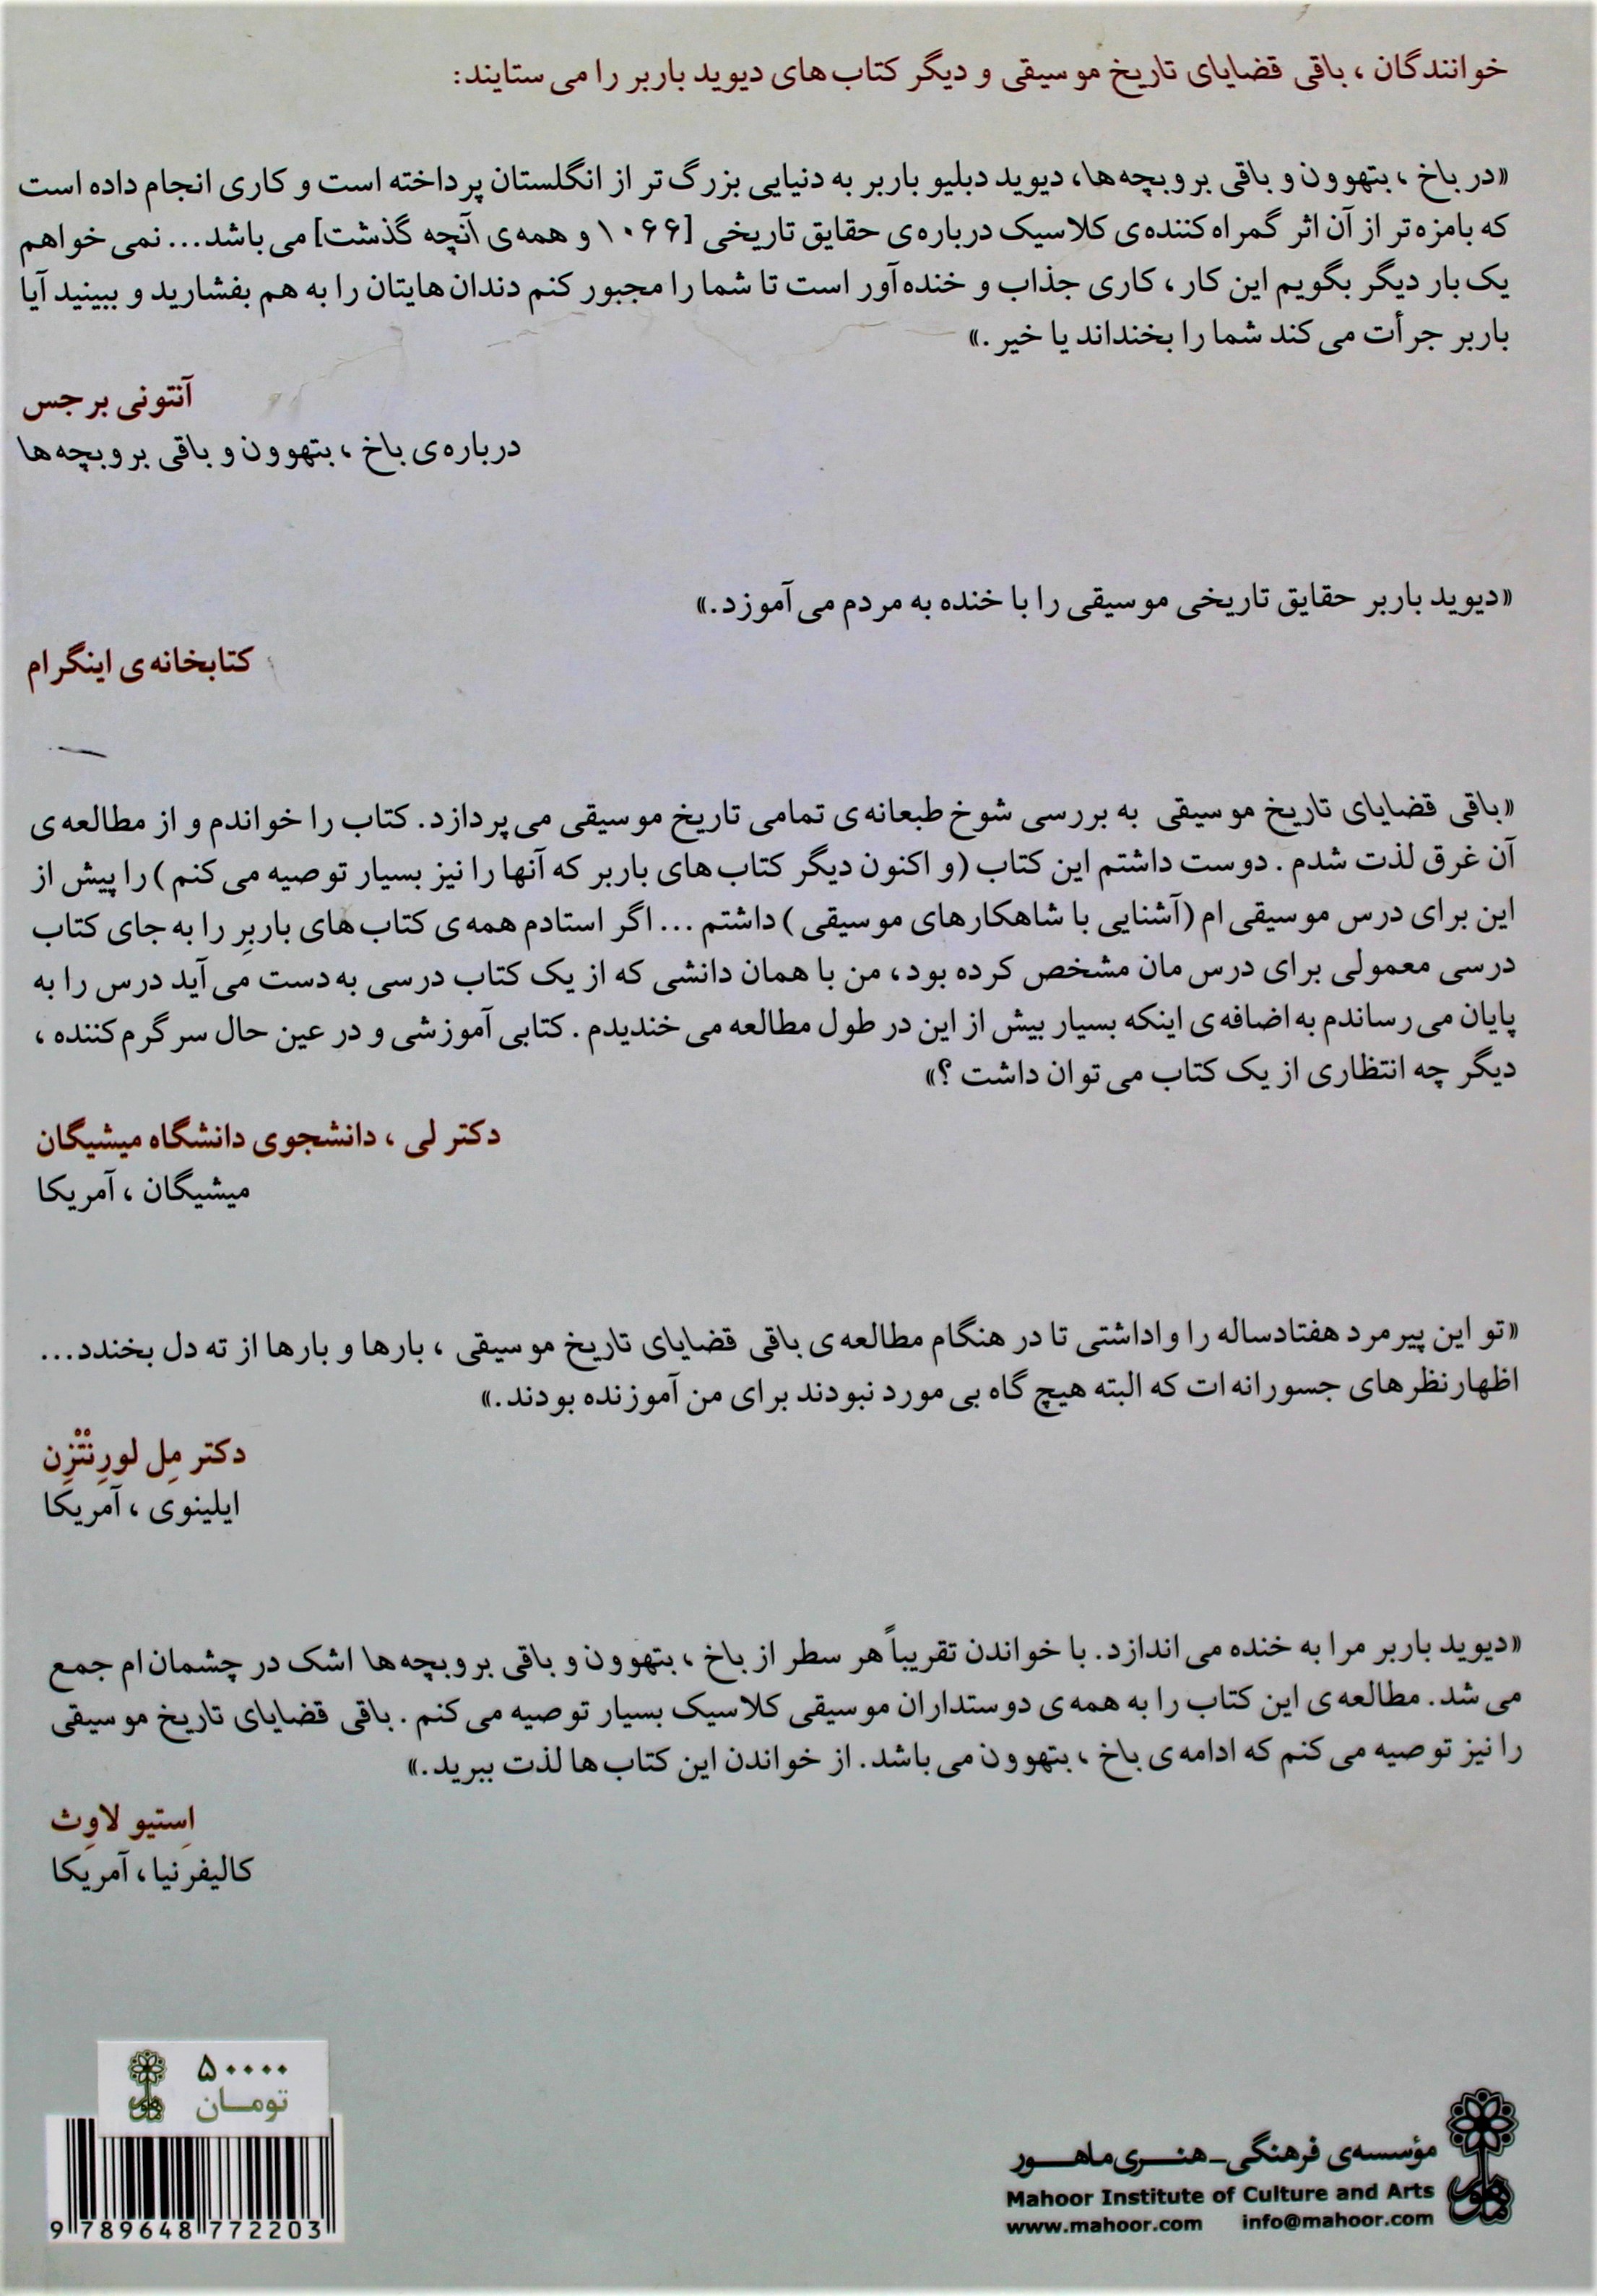 خوانندگان، باقی قضایای تاریخ موسیقی و دیگر کتاب‌های دیوید باربر را می‌ستایند:
«در باخ، بتهوون و باقی بروبچه‌ها، دیوید دبلیو باربر به دنیایی بزرگ‌تر از انگلستان پرداخته است و کاری انجام داده است
که بامزه‌تر از آن اثر گمراه‌کننده‌ی کلاسیک درباره‌ی حقایق تاریخی [۱۰۶۶ و همه‌ی آنچه گذشت] می‌باشد... نمی‌خواهم
یک بار دیگر بگویم این کار، کاری جذاب و خنده‌آور است تا شما را مجبور کنم دندان‌هایتان را به هم بفشارید و ببینید آیا
باربر جرأت می‌کند شما را بخنداند یا خیر.»
آنتونی برجس
درباره‌ی باخ، بتهوون و باقی بروبچه‌ها
«دیوید باربر حقایق تاریخی موسیقی را با خنده به مردم می‌آموزد.»
کتابخانه‌ی اینگرام
«باقی قضایای تاریخ موسیقی به بررسی شوخ‌طبعانه‌ی تمامی تاریخ موسیقی می‌پردازد. کتاب را خواندم و از مطالعه‌ی
آن غرق لذت شدم. دوست داشتم این کتاب (و اکنون دیگر کتاب‌های باربر که آنها را نیز بسیار توصیه می‌کنم) را پیش از
این برای درس موسیقی‌ام (آشنایی با شاهکارهای موسیقی) داشتم ... اگر استادم همه‌ی کتاب‌های باربِر را به جای کتاب
درسی معمولی برای درس‌مان مشخص کرده بود، من با همان دانشی که از یک کتاب درسی به‌دست می‌آید درس را به
پایان می‌رساندم به اضافه‌ی اینکه بسیار بیش از این در طول مطالعه می‌خندیدم. کتابی آموزشی و در عین حال سرگرم‌کننده،
دیگر چه انتظاری از یک کتاب می‌توان داشت؟»
دکتر لی، دانشجوی دانشگاه میشیگان
میشیگان، آمریکا
«تو این پیرمرد هفتادساله را واداشتی تا در هنگام مطالعه‌ی باقی قضایای تاریخ موسیقی، بارها و بارها از ته دل بخندد...
اظهارنظرهای جسورانه‌ات که البته هیچ‌گاه بی‌مورد نبودند برای من آموزنده بودند.»
دکتر مِل لورِنْتْزِن
ایلینوی، آمریکا
«دیوید باربر مرا به خنده می‌اندازد. با خواندن تقریباً هر سطر از باخ، بتهوون و باقی بروبچه‌ها اشک در چشمان‌ام جمع
می‌شد. مطالعه‌ی این کتاب را به همه‌ی دوستداران موسیقی کلاسیک بسیار توصیه می‌کنم. باقی قضایای تاریخ موسیقی
را نیز توصیه می‌کنم که ادامه‌ی باخ، بتهوون می‌باشد. از خواندن این کتاب‌ها لذت ببرید.»
اِستیو لاوِث
کالیفرنیا، آمریکا
۵۰۰۰۰
تومــان
مؤسسه‌ی فرهنگی-هنــری ماهــور
Mahoor Institute of Culture and Arts
www.mahoor.com info@mahoor.com
ماهور
9 789648 772203